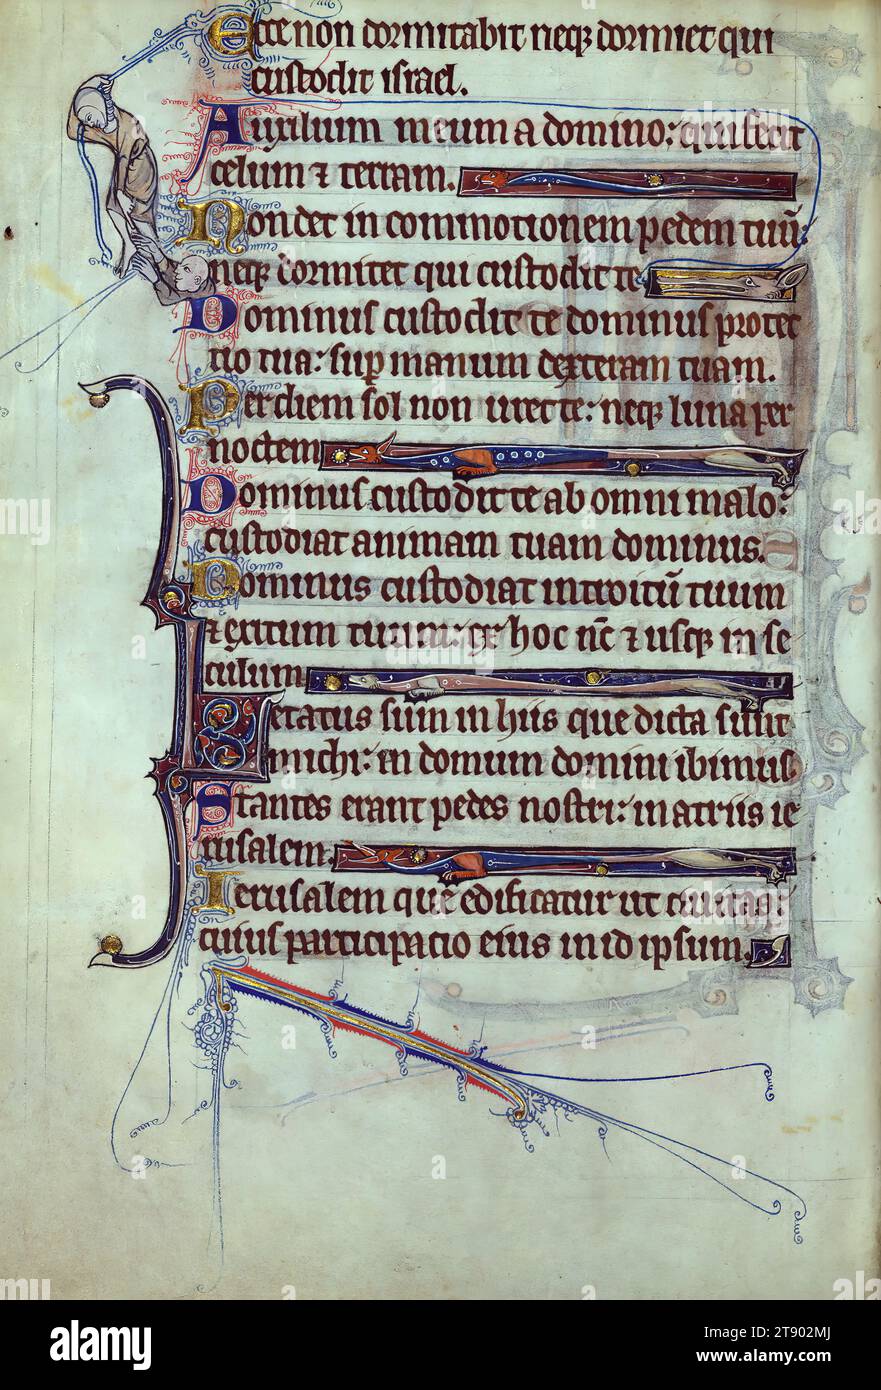 Ecce non dormitabit neqꝫ dormiet qui
custodit israel.
Auxilium meum a domino: qui fecit
celum ⁊ terram.
Non det in commotionem pedem tuū:
neqꝫ dormitet qui custodit te
Dominus custodit te dominus protec
tio tua: suꝑ manum dexteram tuam.
Per diem sol non uret te: neqꝫ luna per
noctem
Dominus custodit te ab omni malo:
custodiat animam tuam dominus.
Dominus custodiat introitū tuum
⁊ exitum tuum: ex hoc nūc ⁊ usqꝫ in se
culum
Letatus sum in hiis que dicta sunt
michi: in domum domini ibimus
Stantes erant pedes nostri: in atriis ie
rusalem.
Ierusalem que edificatur ut ciuitas:
cuius participatio eius in id ipsum.
alamy
Image ID: 2T902MJ
www.alamy.com